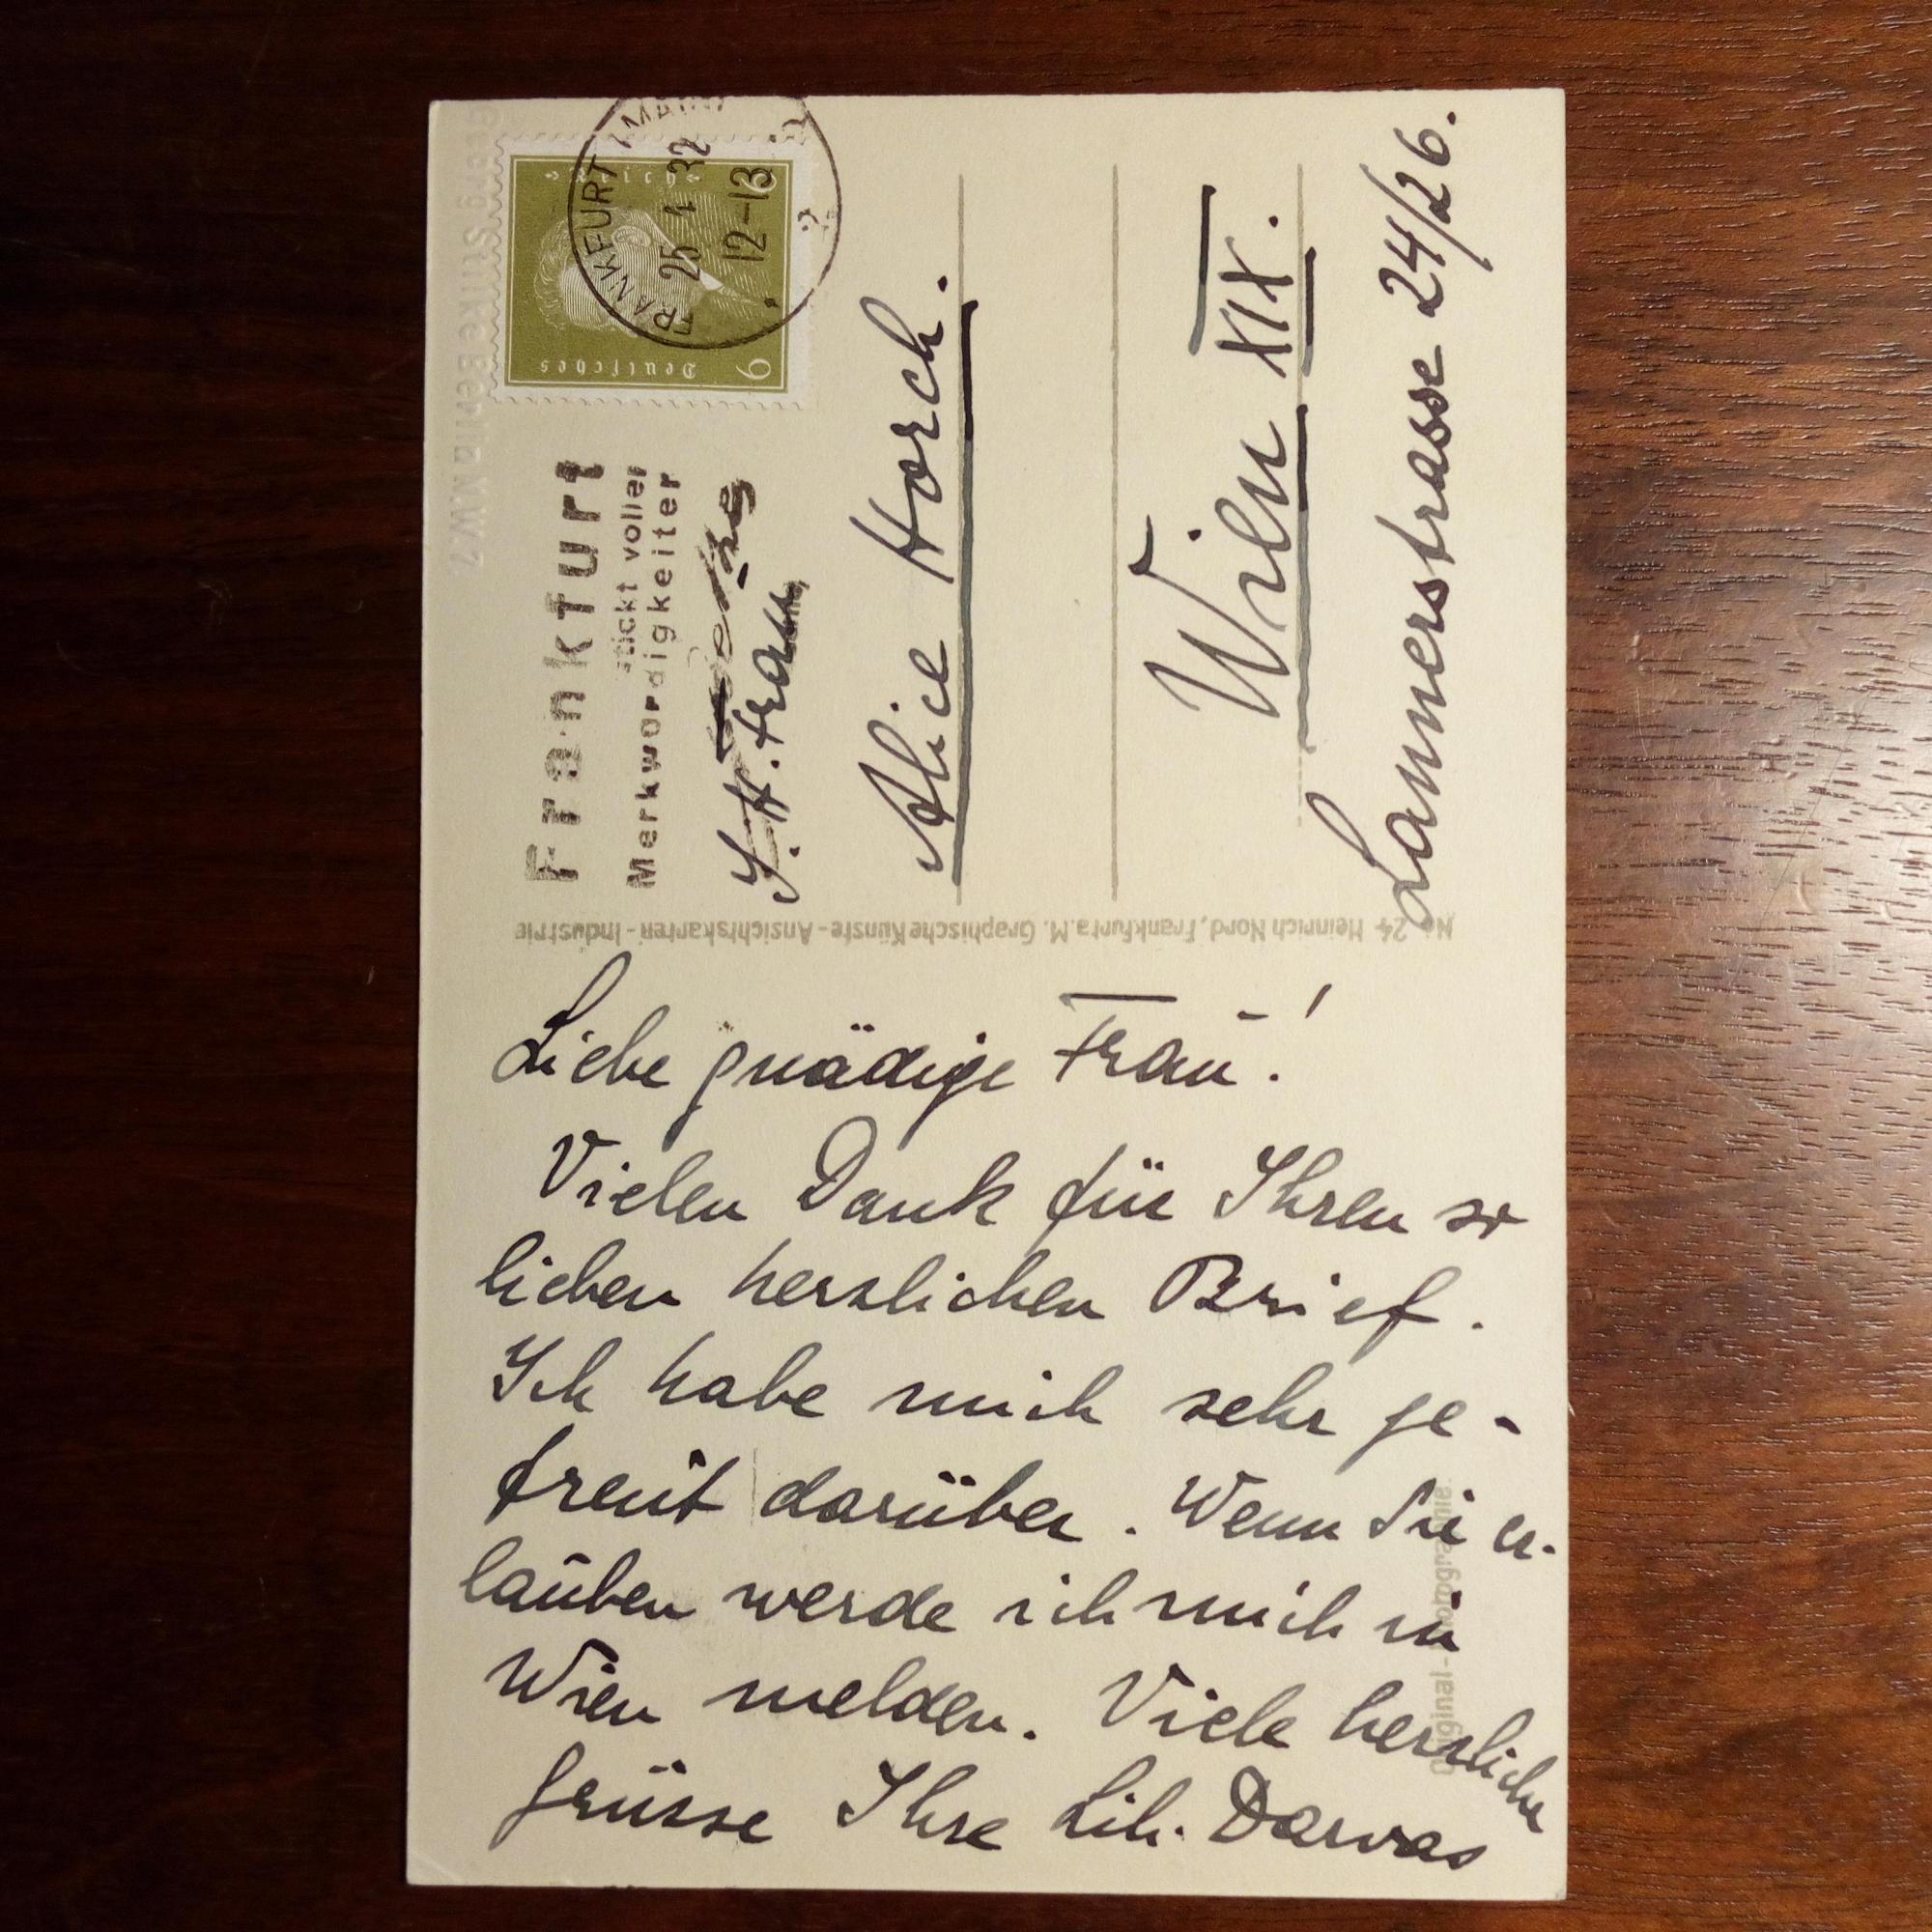 Georg Stilke Berlin NW7
Deutsches Reich
6
6
FRANKFURT (MAIN)
25 4 32
12-13
Frankfurt
stickt voller
Merkwürdigkeiten
I. H. Frau
Alice Horch.
Wien XIX.
Lannerstrasse 24/26.
No 24 Heinrich Nord, Frankfurt a.M. Graphische Künste - Ansichtskarten - Industrie
Original-Photographie
Liebe gnädige Frau!
Vielen Dank für Ihren so
lieben herzlichen Brief.
Ich habe mich sehr ge-
freut darüber. Wenn Sie er-
lauben werde ich mich in
Wien melden. Viele herzliche
Grüsse Ihre Lili Darvas